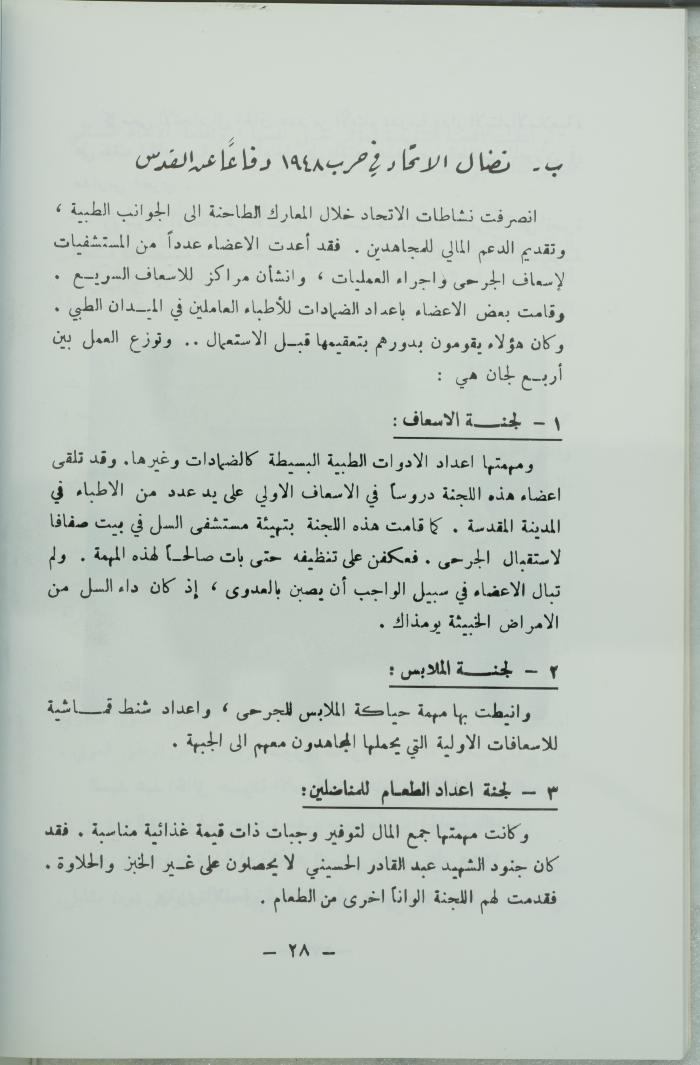 ب - نضال الاتحاد في حرب ١٩٤٨ دفاعًا عن القدس
انصرفت نشاطات الاتحاد خلال المعارك الطاحنة الى الجوانب الطبية ،
وتقديم الدعم المالي للمجاهدين . فقد أعدت الاعضاء عدداً من المستشفيات
لإسعاف الجرحى واجراء العمليات ، وانشأن مراكز للاسعاف السريع .
وقامت بعض الاعضاء باعداد الضمادات للأطباء العاملين في الميدان الطبي .
وكان هؤلاء يقومون بدورهم بتعقيمها قبل الاستعمال .. وتوزع العمل بين
أربع لجان هي :
١ - لجنة الاسعاف :
ومهمتها اعداد الادوات الطبية البسيطة كالضمادات وغيرها. وقد تلقى
اعضاء هذه اللجنة دروساً في الاسعاف الاولي على يد عدد من الاطباء في
المدينة المقدسة . كما قامت هذه اللجنة بتهيئة مستشفى السل في بيت صفافا
لاستقبال الجرحى . فعكفن على تنظيفه حتى بات صالحاً لهذه المهمة . ولم
تبال الاعضاء في سبيل الواجب أن يصبن بالعدوى ، إذ كان داء السل من
الامراض الخبيثة يومذاك .
٢ - لجنة الملابس :
وانيطت بها مهمة حياكة الملابس للجرحى ، واعداد شنط قماشية
للاسعافات الاولية التي يحملها المجاهدون معهم الى الجبهة .
٣ - لجنة اعداد الطعام للمناضلين :
وكانت مهمتها جمع المال لتوفير وجبات ذات قيمة غذائية مناسبة . فقد
كان جنود الشهيد عبد القادر الحسيني لا يحصلون على غير الخبز والحلاوة .
فقدمت لهم اللجنة الواناً اخرى من الطعام .
- ٢٨ -